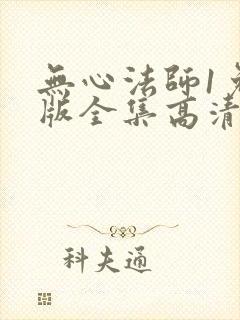 無心法師1
版全集高清
科夫通